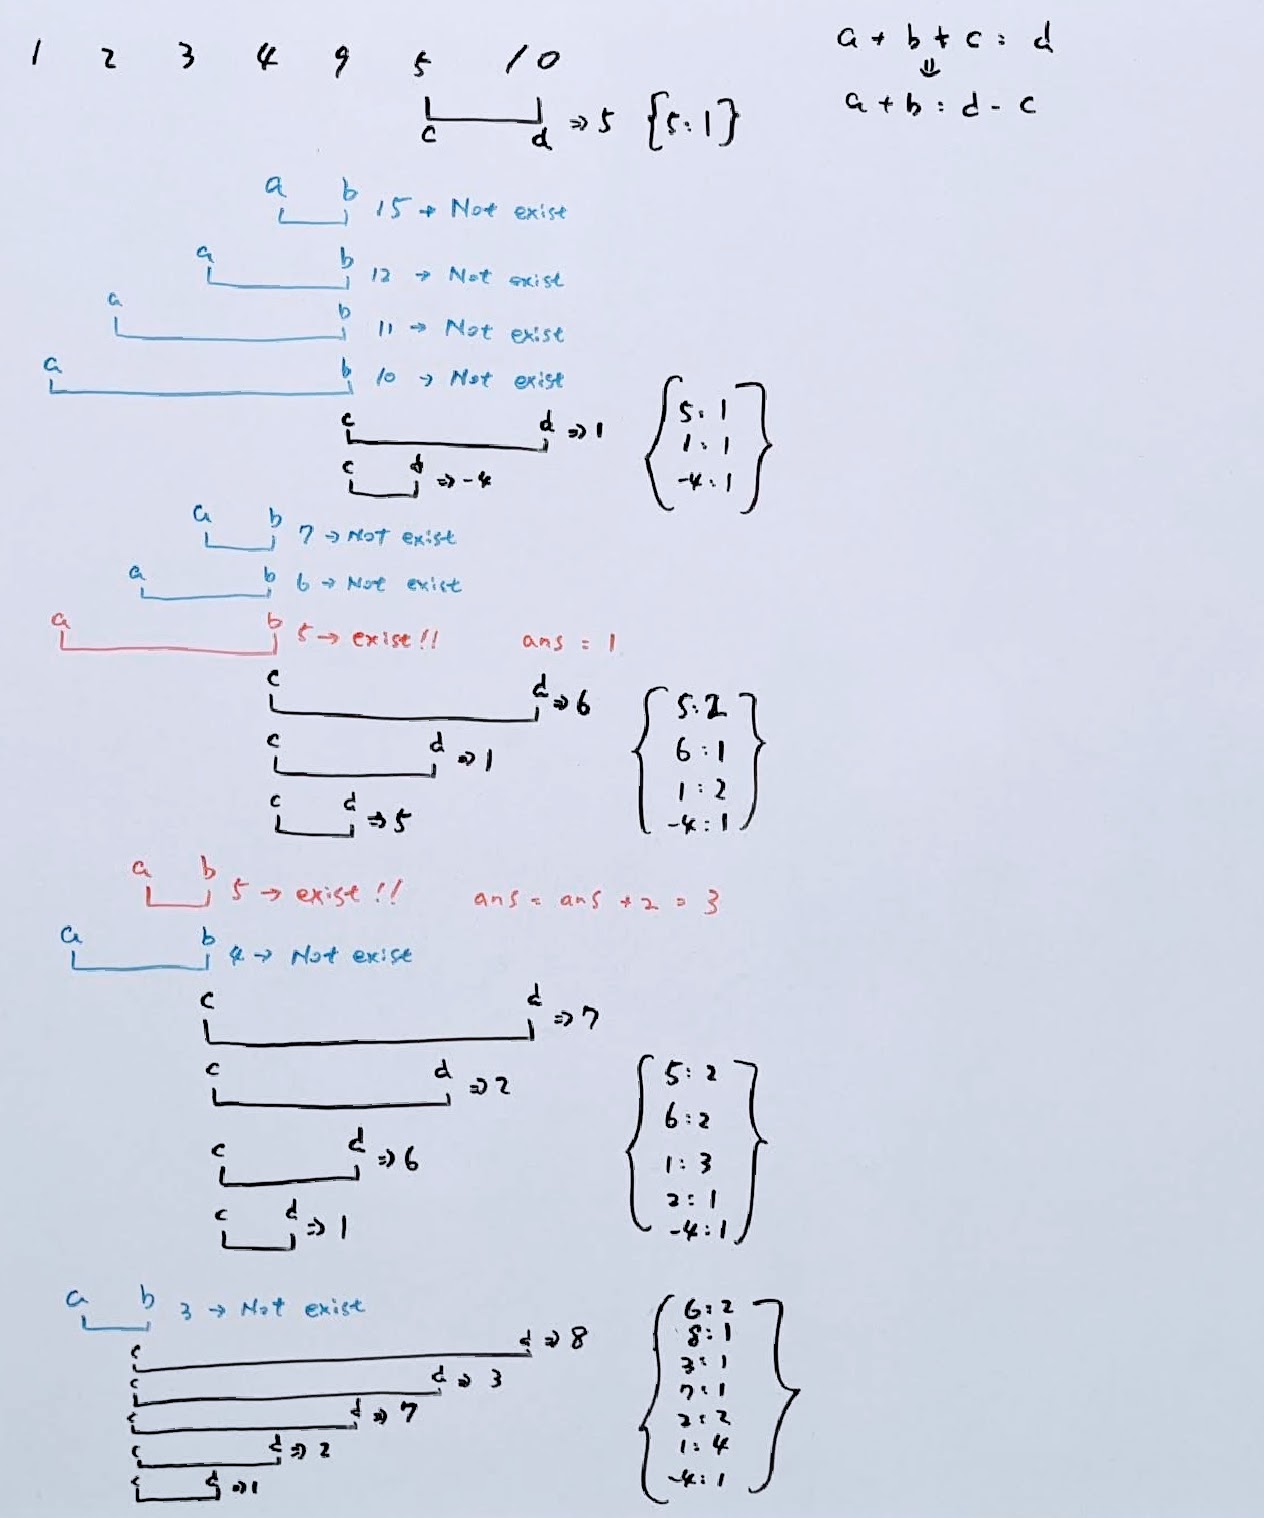 1 2 3 4 9 5 10
a + b + c = d
⇓
a + b = d - c
c d ⇒ 5 {5:1}
a b 15 → Not exist
a b 12 → Not exist
a b 11 → Not exist
a b 10 → Not exist
c d ⇒ 1
c d ⇒ -4
{5:1
1:1
-4:1}
a b 7 → Not exist
a b 6 → Not exist
a b 5 → exist!! ans = 1
c d ⇒ 6
c d ⇒ 1
c d ⇒ 5
{5:2
6:1
1:2
-4:1}
a b 5 → exist!! ans = ans + 2 = 3
a b 4 → Not exist
c d ⇒ 7
c d ⇒ 2
c d ⇒ 6
c d ⇒ 1
{5:2
6:2
1:3
2:1
-4:1}
a b 3 → Not exist
c d ⇒ 8
c d ⇒ 3
c d ⇒ 7
c d ⇒ 2
c d ⇒ 1
{6:2
8:1
3:1
7:1
2:2
1:4
-4:1}